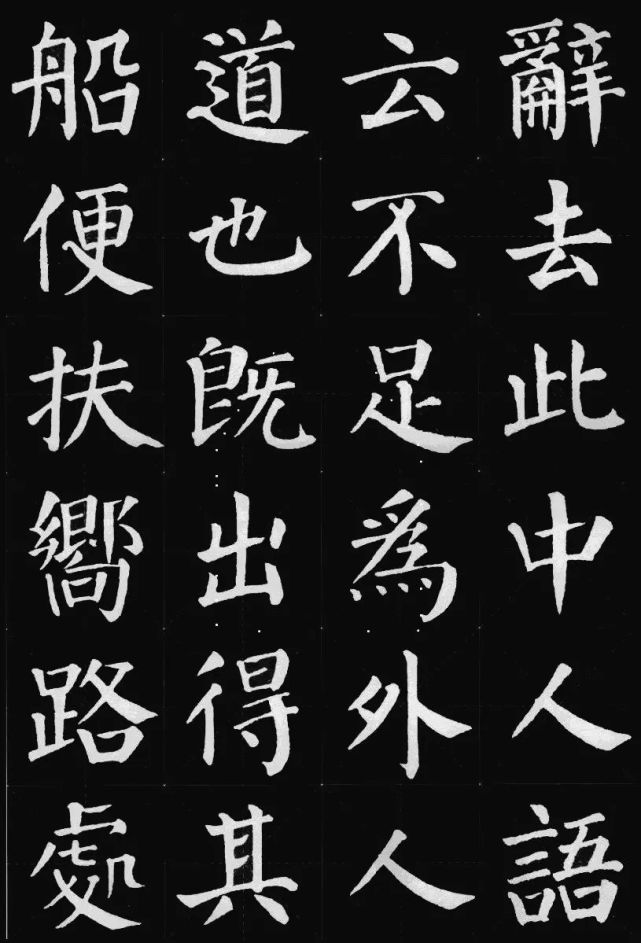 辭去此中人語
云不足為外人
道也既出得其
船便扶嚮路處